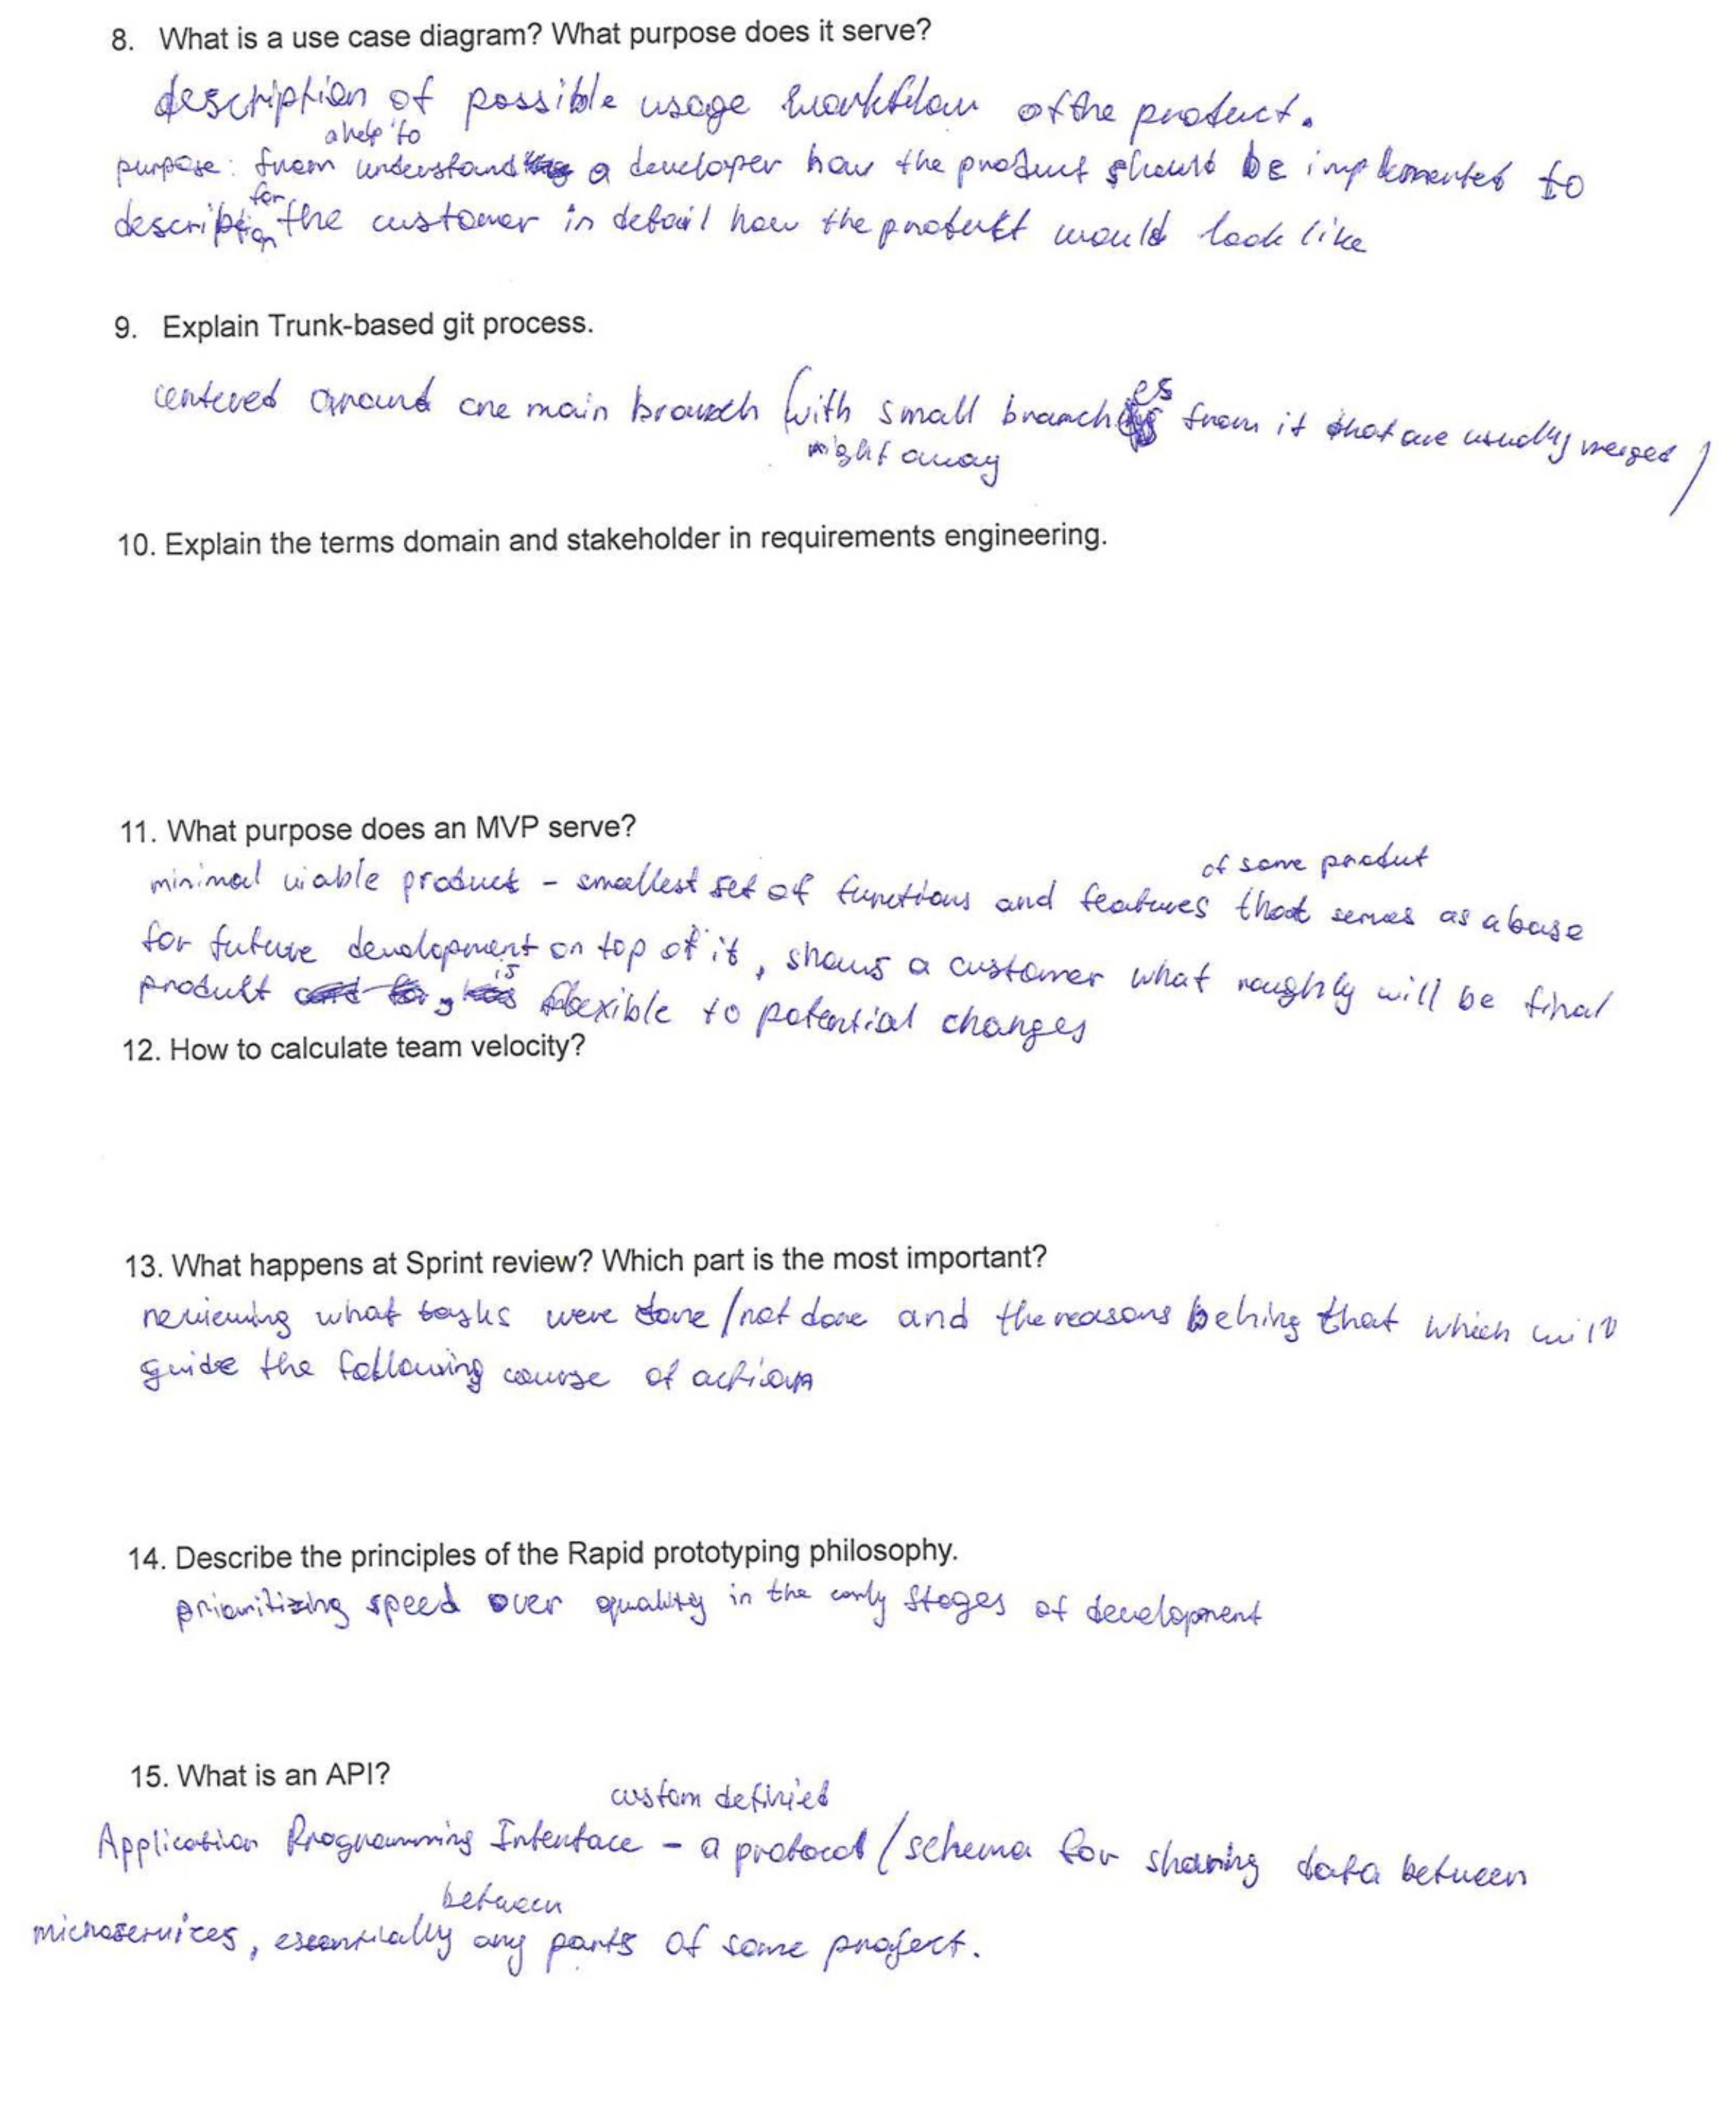 8. What is a use case diagram? What purpose does it serve?
description of possible usage workflow of the product.
a help to
purpose: from understand a developer how the product should be implemented to
for
description the customer in detail how the product would look like
9. Explain Trunk-based git process.
centered around one main branch (with small branches from it that are usually merged)
right away
10. Explain the terms domain and stakeholder in requirements engineering.
11. What purpose does an MVP serve?
of some produt
minimal viable product - smallest set of functions and features that serves as a base
for future development on top of it, shows a customer what roughly will be final
product, is flexible to potential changes
12. How to calculate team velocity?
13. What happens at Sprint review? Which part is the most important?
reviewing what tasks were done/not done and the reasons behing that which will
guide the following course of action
14. Describe the principles of the Rapid prototyping philosophy.
prioritizing speed over quality in the early stages of development
15. What is an API?
custom definied
Application Programming Interface - a protocol / schema for sharing data between
between
microservices, essentially any parts of some project.